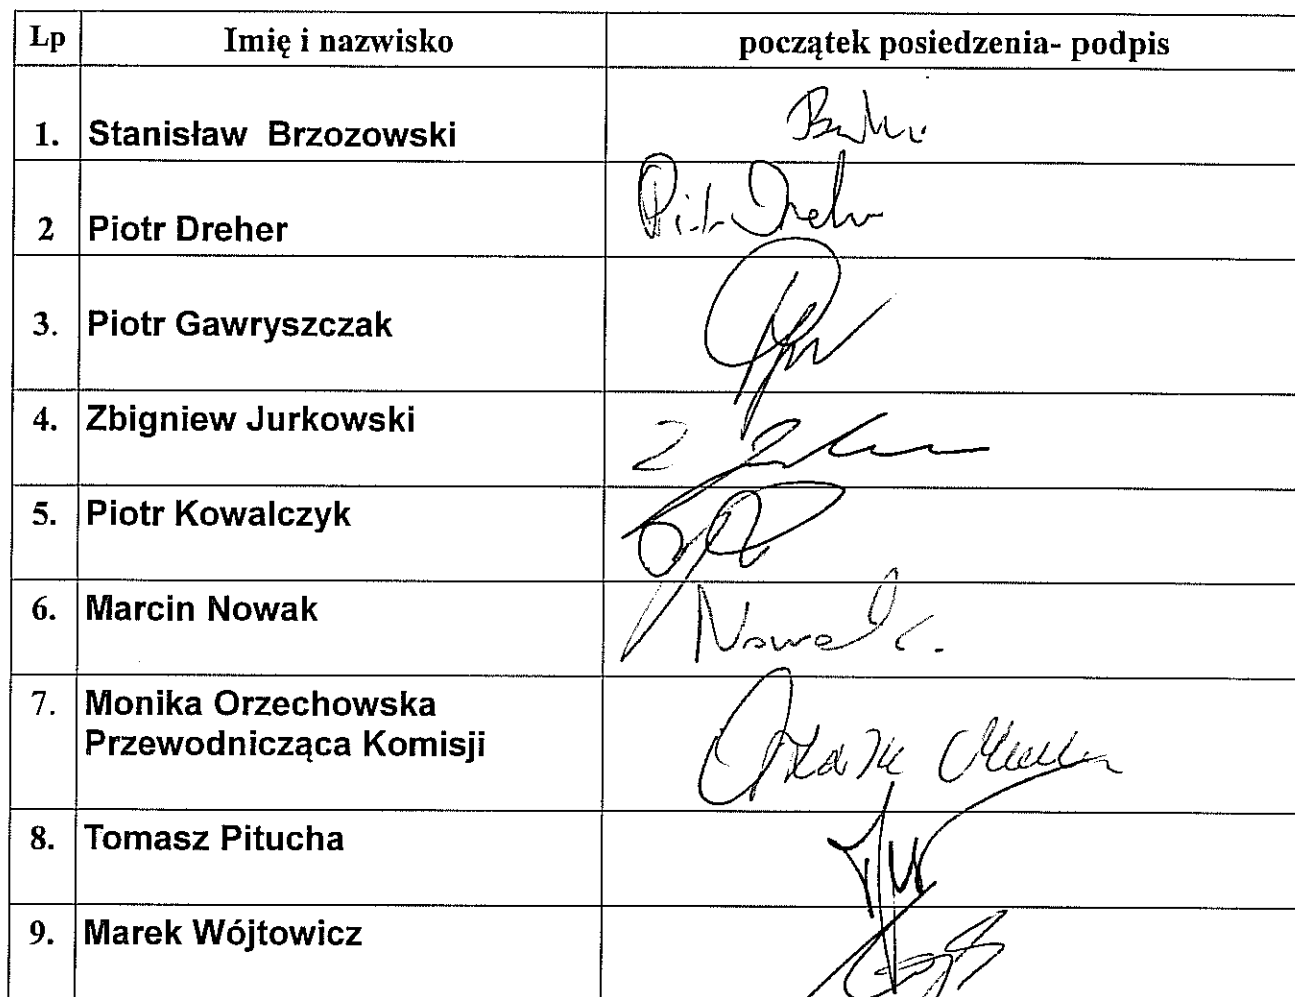 Lp Imię i nazwisko początek posiedzenia- podpis
1. Stanisław Brzozowski
2 Piotr Dreher Piotr Dreher
3. Piotr Gawryszczak
4. Zbigniew Jurkowski
5. Piotr Kowalczyk
6. Marcin Nowak Nowak
7. Monika Orzechowska
Przewodnicząca Komisji
8. Tomasz Pitucha
9. Marek Wójtowicz